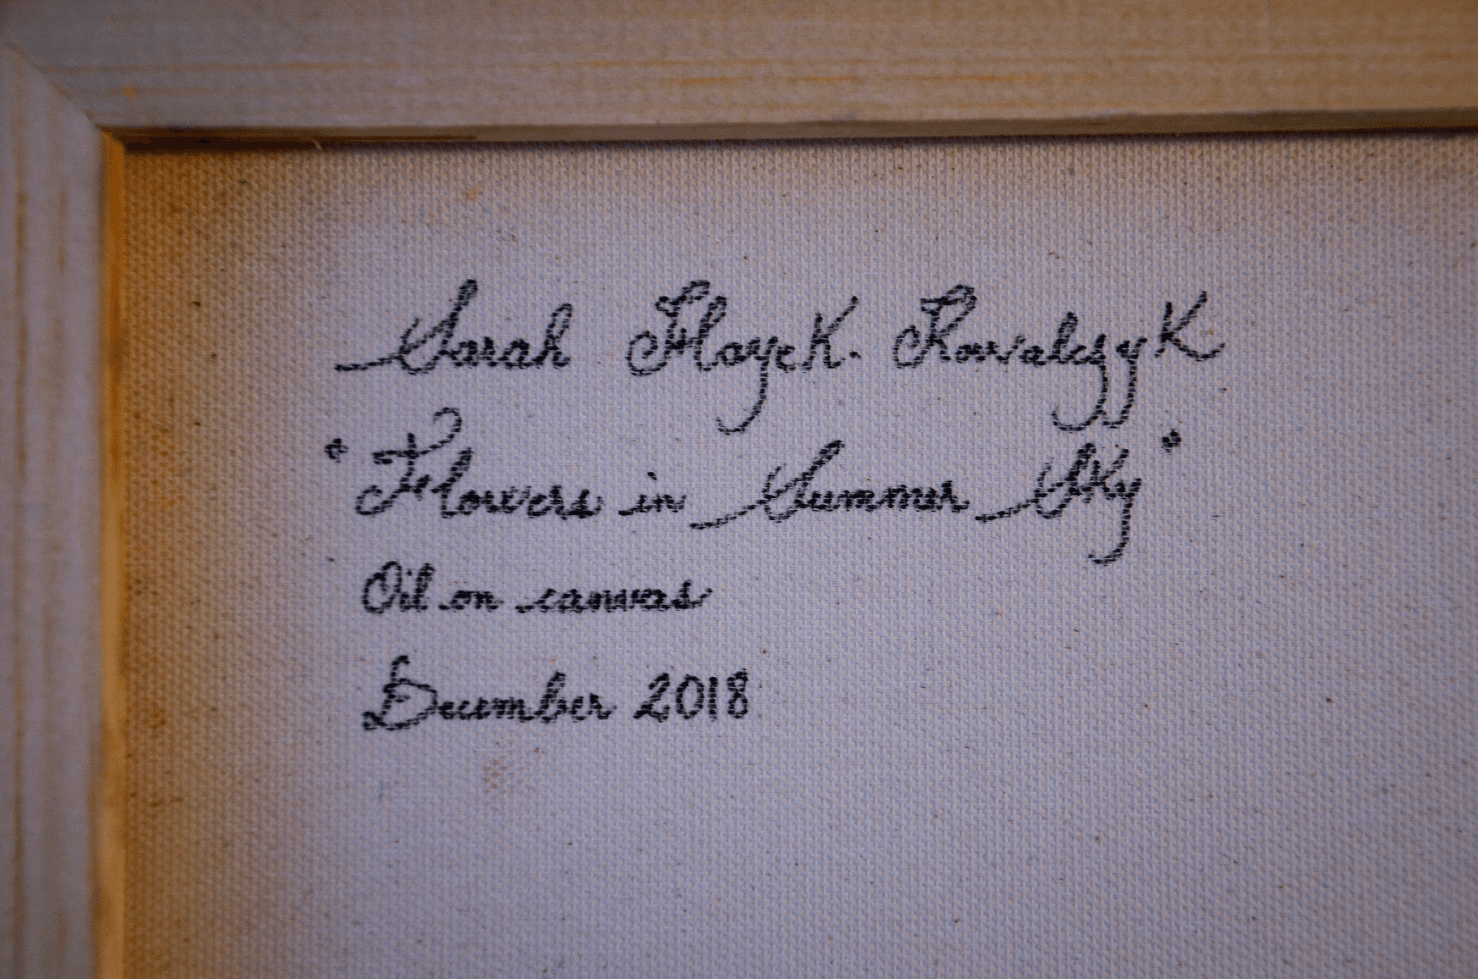 Sarah Hayek. Kowalczyk
"Flowers in Summer Sky"
Oil on canvas
December 2018